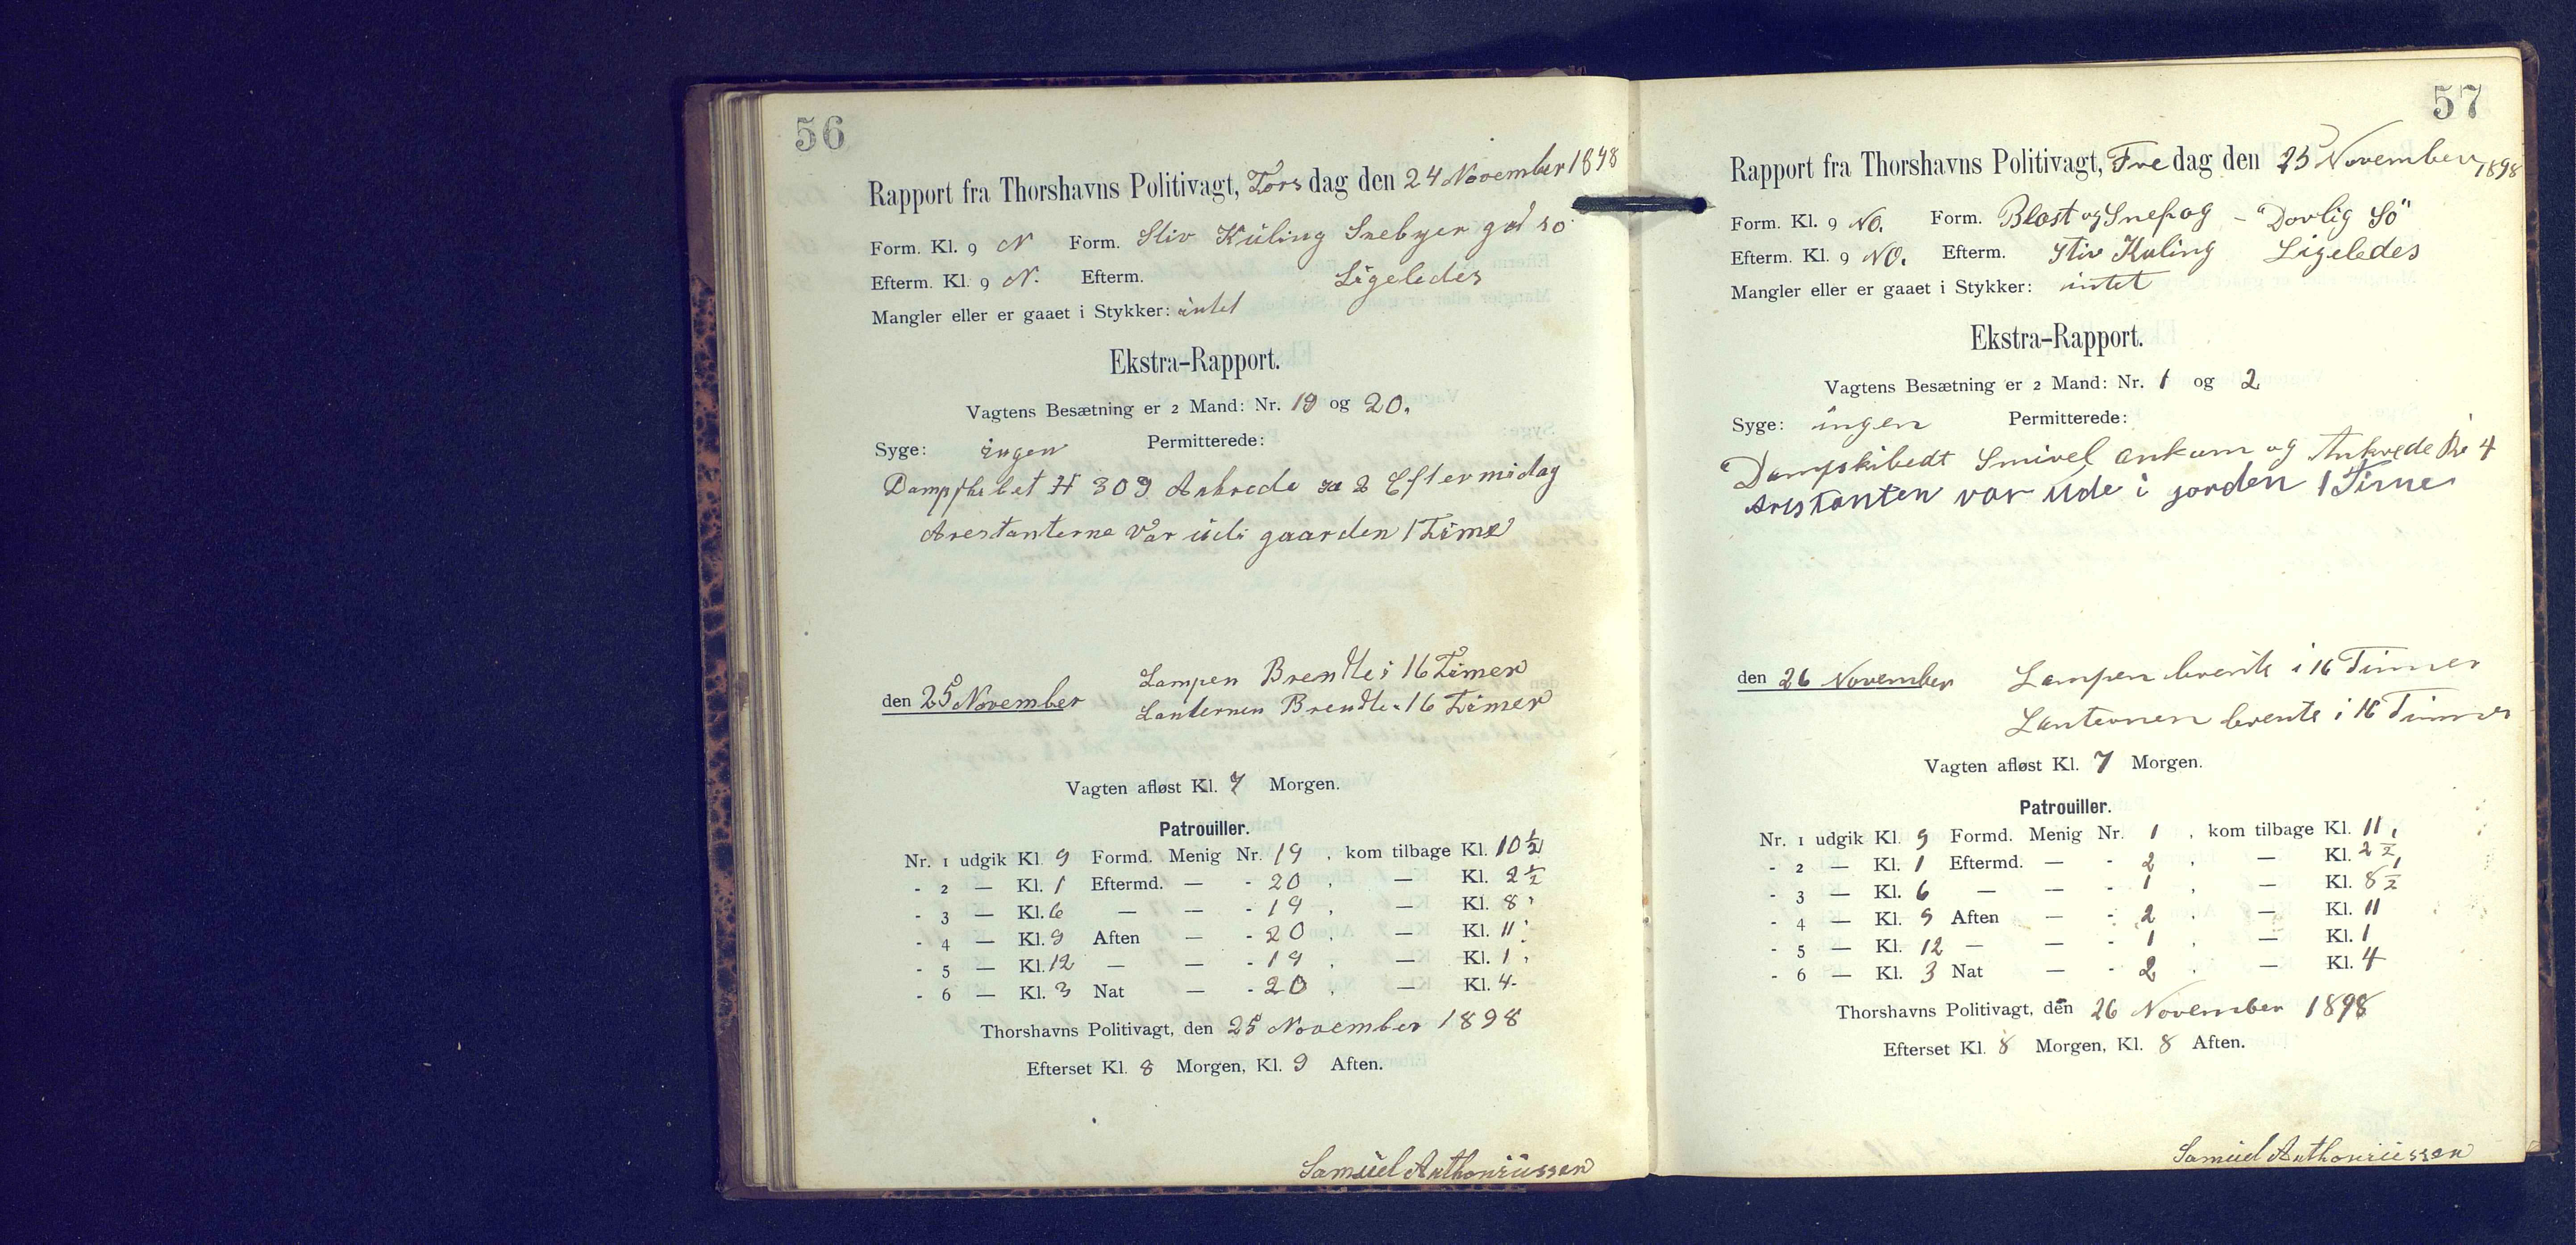 56
Rapport fra Thorshavns Politivagt, Torsdag den 24 November 1898
Form. Kl. 9 N Form. Stiv Kuling Snebyer god sö
Efterm. Kl. 9 N. Efterm. Ligeledes
Mangler eller er gaaet i Stykker: intet
Ekstra-Rapport.
Vagtens Besætning er 2 Mand: Nr. 19 og 20.
Syge: ingen Permitterede:
Dampskibet H 309 Ankrede 2 Eftermidag
Arestanterne var üdi gaarden 1 Time
den 25 November Lampen Brendte i 16 Timer
Lanternen Brendte i 16 Timer
Vagten afløst Kl. 7 Morgen.
Patrouiller.
Nr. 1 udgik Kl. 9 Formd. Menig Nr. 19, kom tilbage Kl. 10 ½
- 2 — Kl. 1 Eftermd. — - 20, — Kl. 2 ½
- 3 — Kl. 6 — — - 19, — Kl. 8
- 4 — Kl. 9 Aften — - 20, — Kl. 11
- 5 — Kl. 12 — — - 19, — Kl. 1
- 6 — Kl. 3 Nat — - 20, — Kl. 4
Thorshavns Politivagt, den 25 November 1898
Efterset Kl. 8 Morgen, Kl. 9 Aften.
Samüel Anthoniüssen
57
Rapport fra Thorshavns Politivagt, Fredag den 25 November 1898
Form. Kl. 9 NO. Form. Blæst og Snefog - "Dovlig Sö"
Efterm. Kl. 9 NO. Efterm. Stiv Kuling Ligeledes
Mangler eller er gaaet i Stykker: intet
Ekstra-Rapport.
Vagtens Besætning er 2 Mand: Nr. 1 og 2
Syge: ingen Permitterede:
Dampskibedt Smivel ankum og Ankrede Kl 4
Arestanten var üde i gorden 1 Time
den 26 November Lampen brente i 16 Timer
Lanternen brente i 16 Timer
Vagten afløst Kl. 7 Morgen.
Patrouiller.
Nr. 1 udgik Kl. 9 Formd. Menig Nr. 1, kom tilbage Kl. 11
- 2 — Kl. 1 Eftermd. — - 2, — Kl. 2 ½
- 3 — Kl. 6 — — - 1, — Kl. 8 ½
- 4 — Kl. 9 Aften — - 2, — Kl. 11
- 5 — Kl. 12 — — - 1, — Kl. 1
- 6 — Kl. 3 Nat — - 2, — Kl. 4
Thorshavns Politivagt, den 26 November 1898
Efterset Kl. 8 Morgen, Kl. 8 Aften.
Samüel Anthoniüssen